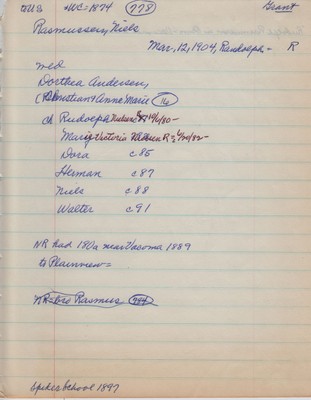 +WC=1874 (778) Grant
Rasmussen, Niels
Mar, 12, 1904, Randolph - R
md
Dorthea Andersen,
(Christian + Anne Marie (16)
ch Rudolph 10/6/80-
Mary Victoria R= 6/20/82-
Dora c.85
Herman c.87
Niels c.88
Walter c.91
NR had 180a near Yacoma 1889
to Plainview=
NR=bro Rasmus (784)
Spikes School 1897